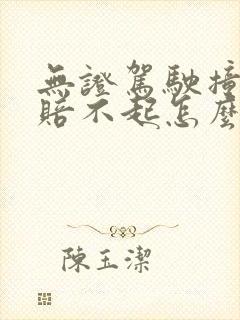 無證駕駛撞
賠不起怎麼
陳玉潔